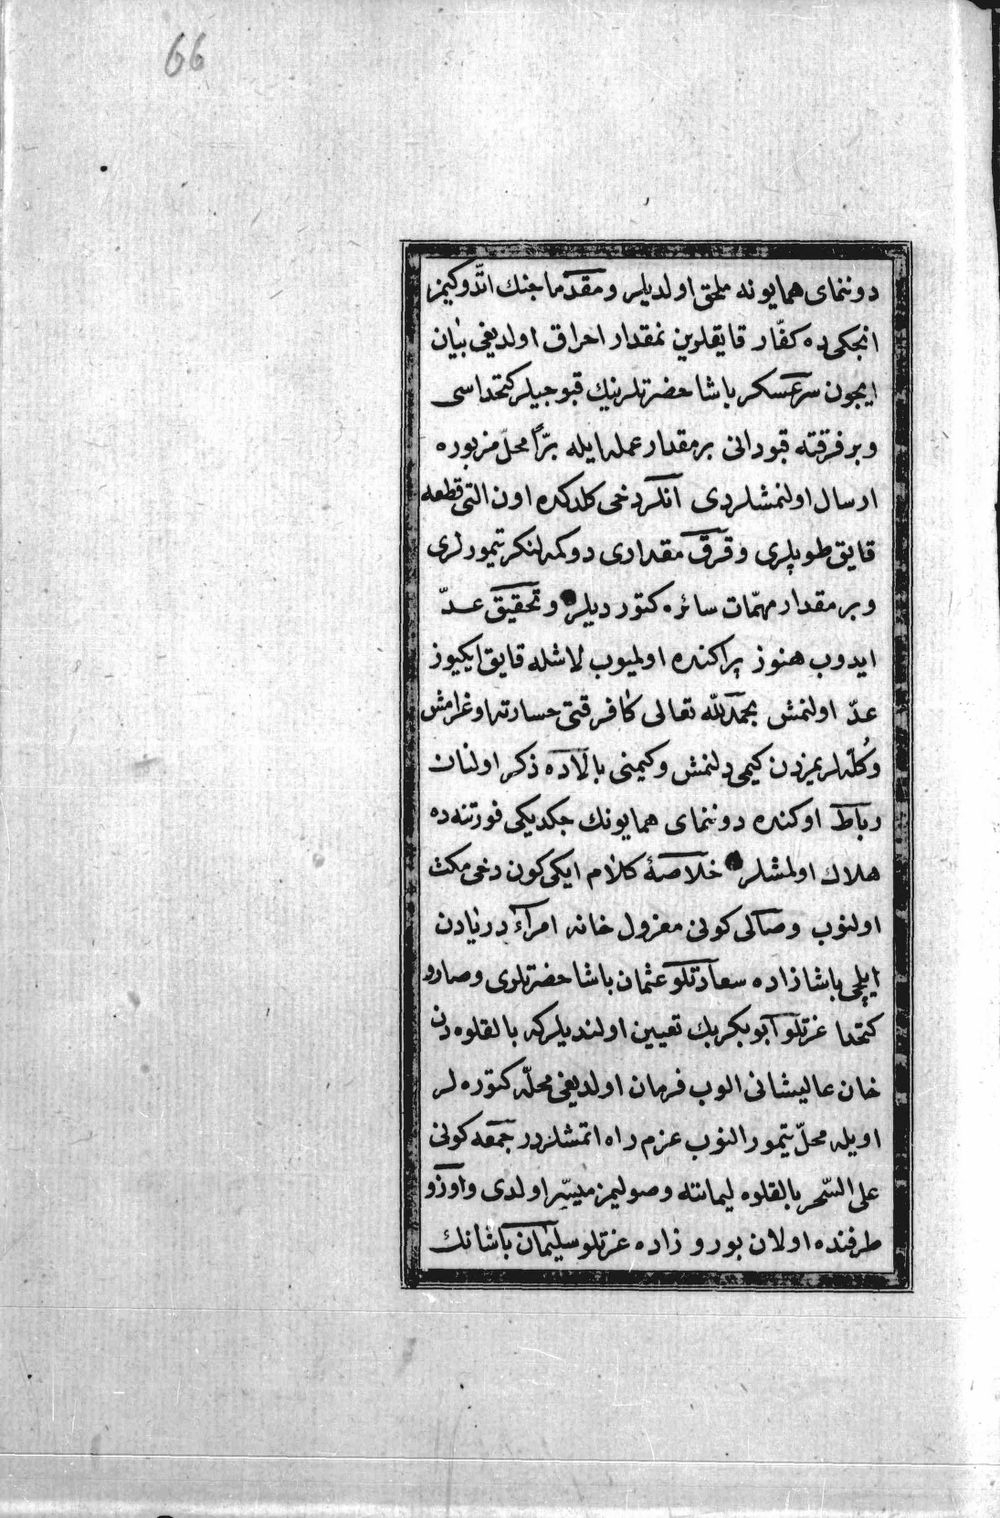 66
دوننمای همایونه ملحق اولدیلر و مقدّما جنك اتدّوكیمز
انجكی‌ده كفّار قایقلرین نمقدار احراق اولدیغی بیان
ایچون سرعسكر پاشا حضرتلرینك قبوجیلر كتخداسی
و بر فرقته قبودانی بر مقدار عمله ایله برّاً محلّ مزبوره
ارسال اولنمشلردی انلر دخی كلدكده اون التی قطعه
قایق طوپلری و قرق مقداری دوكمه لنكر تیمورلری
و بر مقدار مهمّات سائره كتوردیلر و تحقیق عدّ
ایدوب هنوز پراكنده اولمیوب لاشله قایق ایكیوز
عدّ اولنمش بحمدالله تعالی كافر قتی خسارته اوغرامش
و كُلّه‌لریمزدن كیمی دلنمش و كیمنی بالاده ذكر اولنان
رباط اوكنده دوننمای همایونك چكدیكی فورتنه‌ده
هلاك اولمشلر خلاصهٔ كلام ایكی كون دخی مكث
اولنوب و صالی كونی معزول خانه امراء دریادن
ایلچی پاشا زاده سعادتلو عثمان پاشا حضرتلری و صارو
كتخدا عزتلو ابو بكر بك تعیین اولندیلركه بالقلوه‌دن
خان عالیشانی الوب فرمان اولدیغی محلّه كتوره‌لر
اویله محلّ تیمور النوب عزم راه اتمشلردر جمعه كونی
علی السّحر بالقلوه لیماننه وصولیمز میسّر اولدی و اوزو
طرفنده اولان بورو زاده عزتلو سلیمان پاشانك